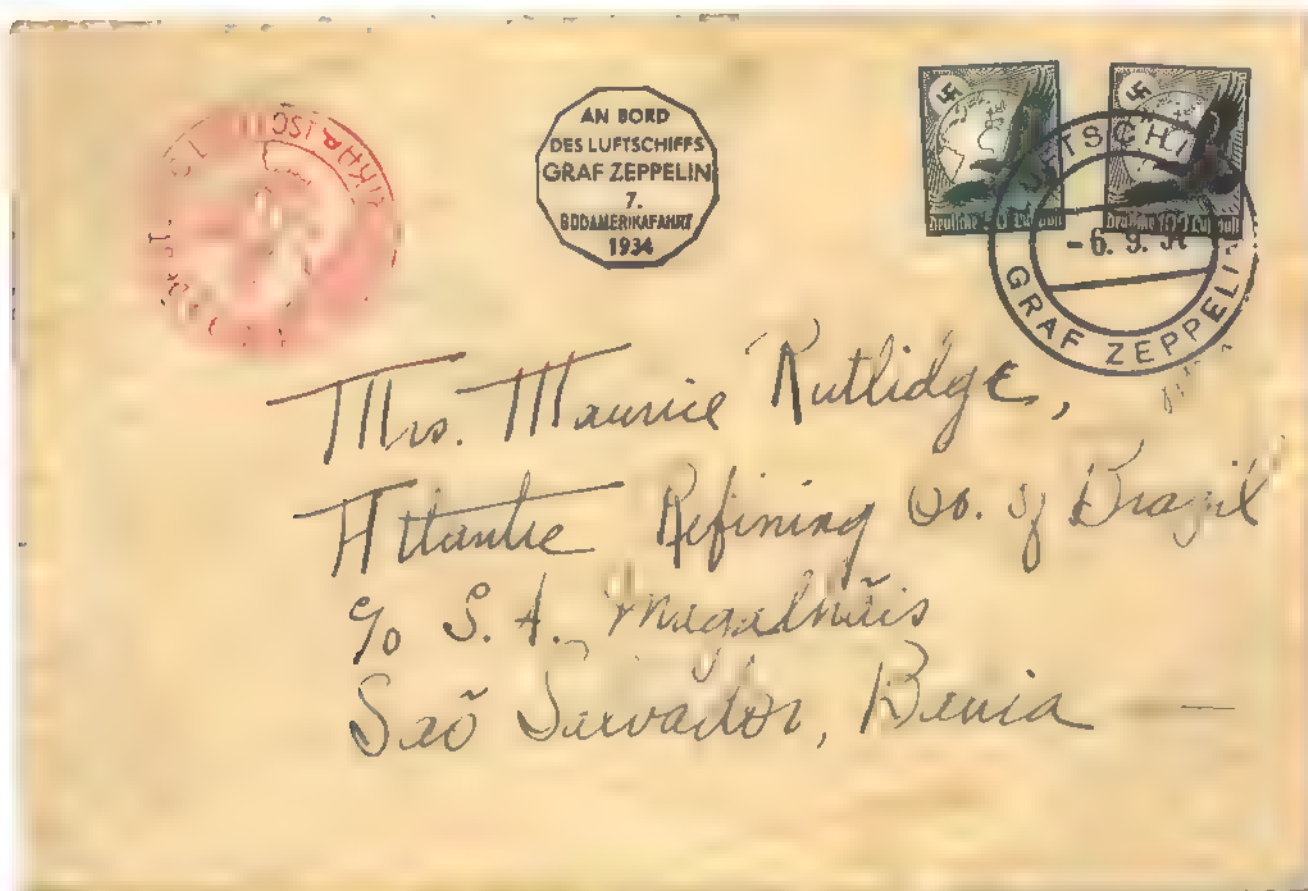 AN BORD
DES LUFTSCHIFFS
GRAF ZEPPELIN
7.
SÜDAMERIKAFAHRT
1934
Deutsche Luftpost
Deutsche Luftpost
-6. 9. 34
GRAF ZEPPELIN
Mrs. Maurice Rutlidge,
Atlantic Refining Co. of Brazil
c/o S. A. Magalhãis
Saõ Salvador, Bahia —